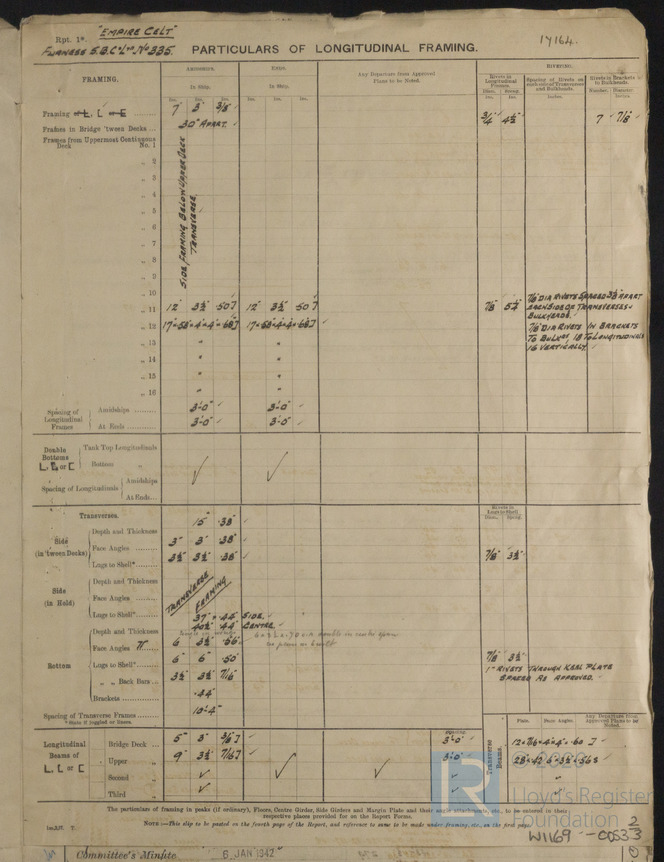 "EMPIRE CELT"
Rpt. 1*.
17164.
PARTICULARS OF LONGITUDINAL FRAMING.
FRAMING.
AMIDSHIPS.
ENDS.
Any Departure from Approved Plans to be Noted.
RIVETING.
In Ship.
In Ship.
Rivets in Longitudinal Flanges.
Spacing of Rivets on each side of Transverses and Bulkheads.
Rivets in Brackets to Bulkheads.
Ins. Ins. Ins. Ins. Ins. Ins.
Diam. Spcng.
Inches.
Number. Diameter
Framing
7" 3" 3/8"
3/4" 4½"
7 7/8"
Frames in Bridge 'tween Decks ...
30" APART.
Frames from Uppermost Continuous Deck No. 1
SIDE FRAMING BELOW UPPER DECK TRANSVERSE
" 2
" 3
" 4
" 5
" 6
" 7
" 8
" 9
" 10
" 11 12" 3½" .50 12" 3½" .50 7/8" 5¼"
7/8" DIA RIVETS SPACED 3½" APART EACH SIDE OF TRANSVERSES & BULKHEADS.
" 12
7/8" DIA RIVETS IN BRACKETS
TO BULKHDS, 18 TO LONGITUDINALS
16 VERTICALLY.
" 13 " "
" 14 " "
" 15 " "
" 16 " "
Spacing of Longitudinal Frames
Amidships 3'-0" 3'-0"
At Ends 3'-0" 3'-0"
Double Bottoms
Tank Top Longitudinals
Bottom "
Spacing of Longitudinals
Amidships
At Ends...
Transverses.
Rivets in Lugs to Shell
Diam. Spcng.
Side (in 'tween Decks)
Depth and Thickness 15" .38"
Face Angles 3" 3" .38"
Lugs to Shell* 3½" 3½" .38" 7/8" 3½"
Side (in Hold)
Depth and Thickness
Face Angles
TRANSVERSE FRAMING
Lugs to Shell*
37" .44" SIDE.
Bottom
Depth and Thickness 40½" .44" CENTRE.
Face Angles 6" 3½" .56"
Lugs to Shell* 6" 6" .50" 7/8" 3½"
" " Back Bars 3½" 3½" 7/16"
1" RIVETS THROUGH KEEL PLATE
SPACED AS APPROVED.
Brackets .44"
Spacing of Transverse Frames 10'-4"
*State if joggled or liners.
Longitudinal Beams of
Spacing
Transverse Beams.
Plate. Face Angles.
Any Departure from Approved Plans to be Noted.
Bridge Deck 5" 3" 3/8" 3'-0"
Upper " 9" 3½" 7/16" 3'-0"
Second "
Third "
The particulars of framing in peaks (if ordinary), Floors, Centre Girder, Side Girders and Margin Plate and their angle attachments, etc., to be entered in their
respective places provided for on the Report Forms.
NOTE.—This slip to be pasted on the fourth page of the Report, and reference to same to be made under framing, etc., on the first page.
© 2020
Lloyd's Register
Foundation
2
W1169-0053
Committee's Minute
6 JAN 1942